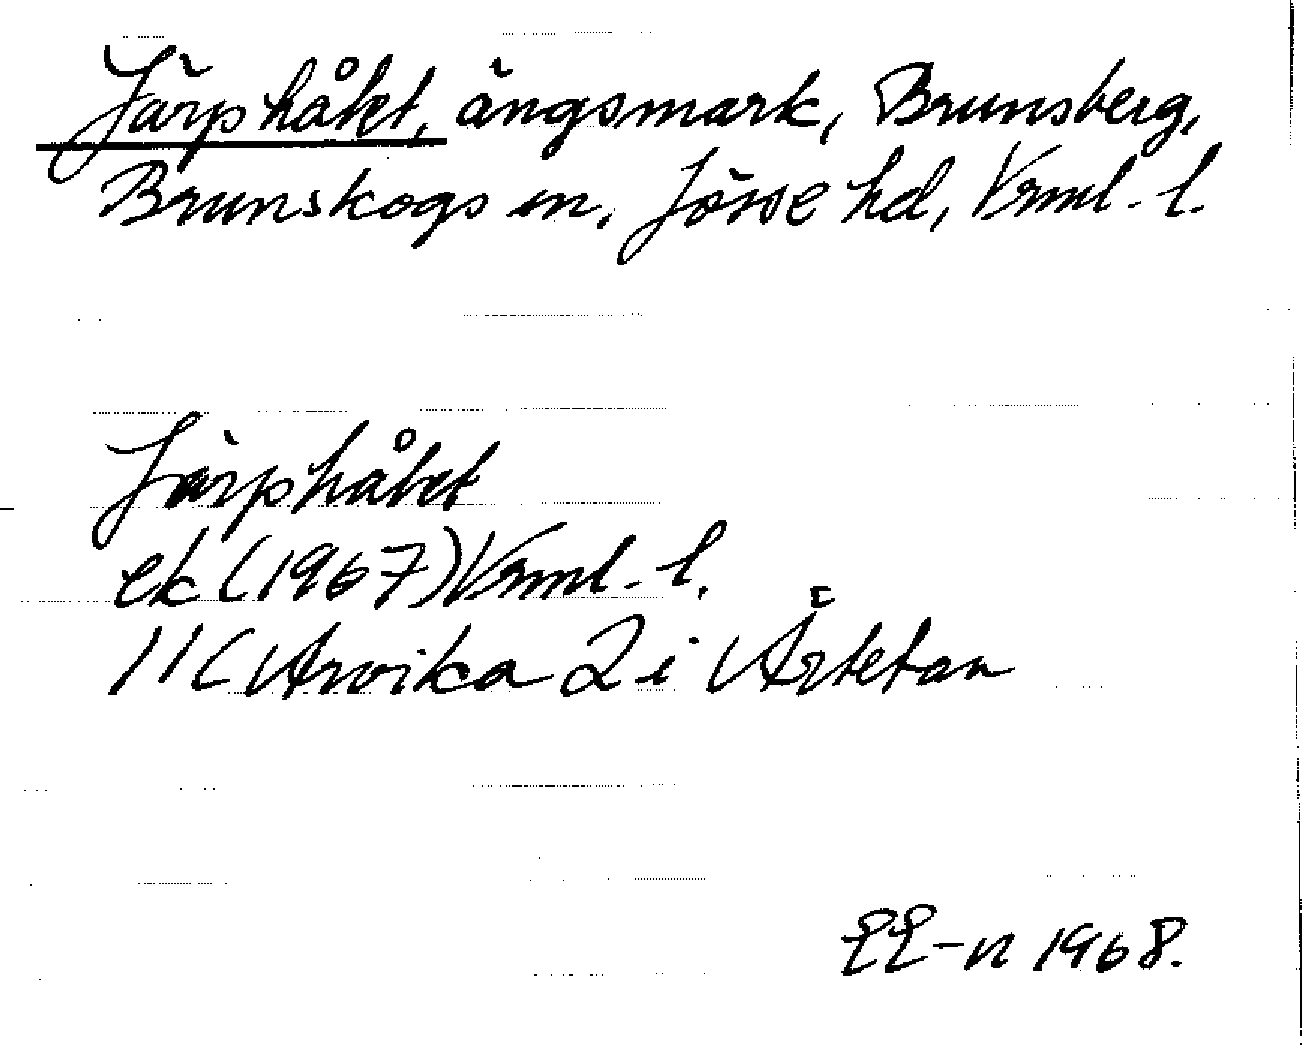 Järphåket, ängsmark, Brunsberg,
Brunskogs sn, Jösse hd, Vrml-l.
Järphåket
ek (1967) Vrml-l.
11C Arvika 2 i Ärtetan
EE-n 1968.